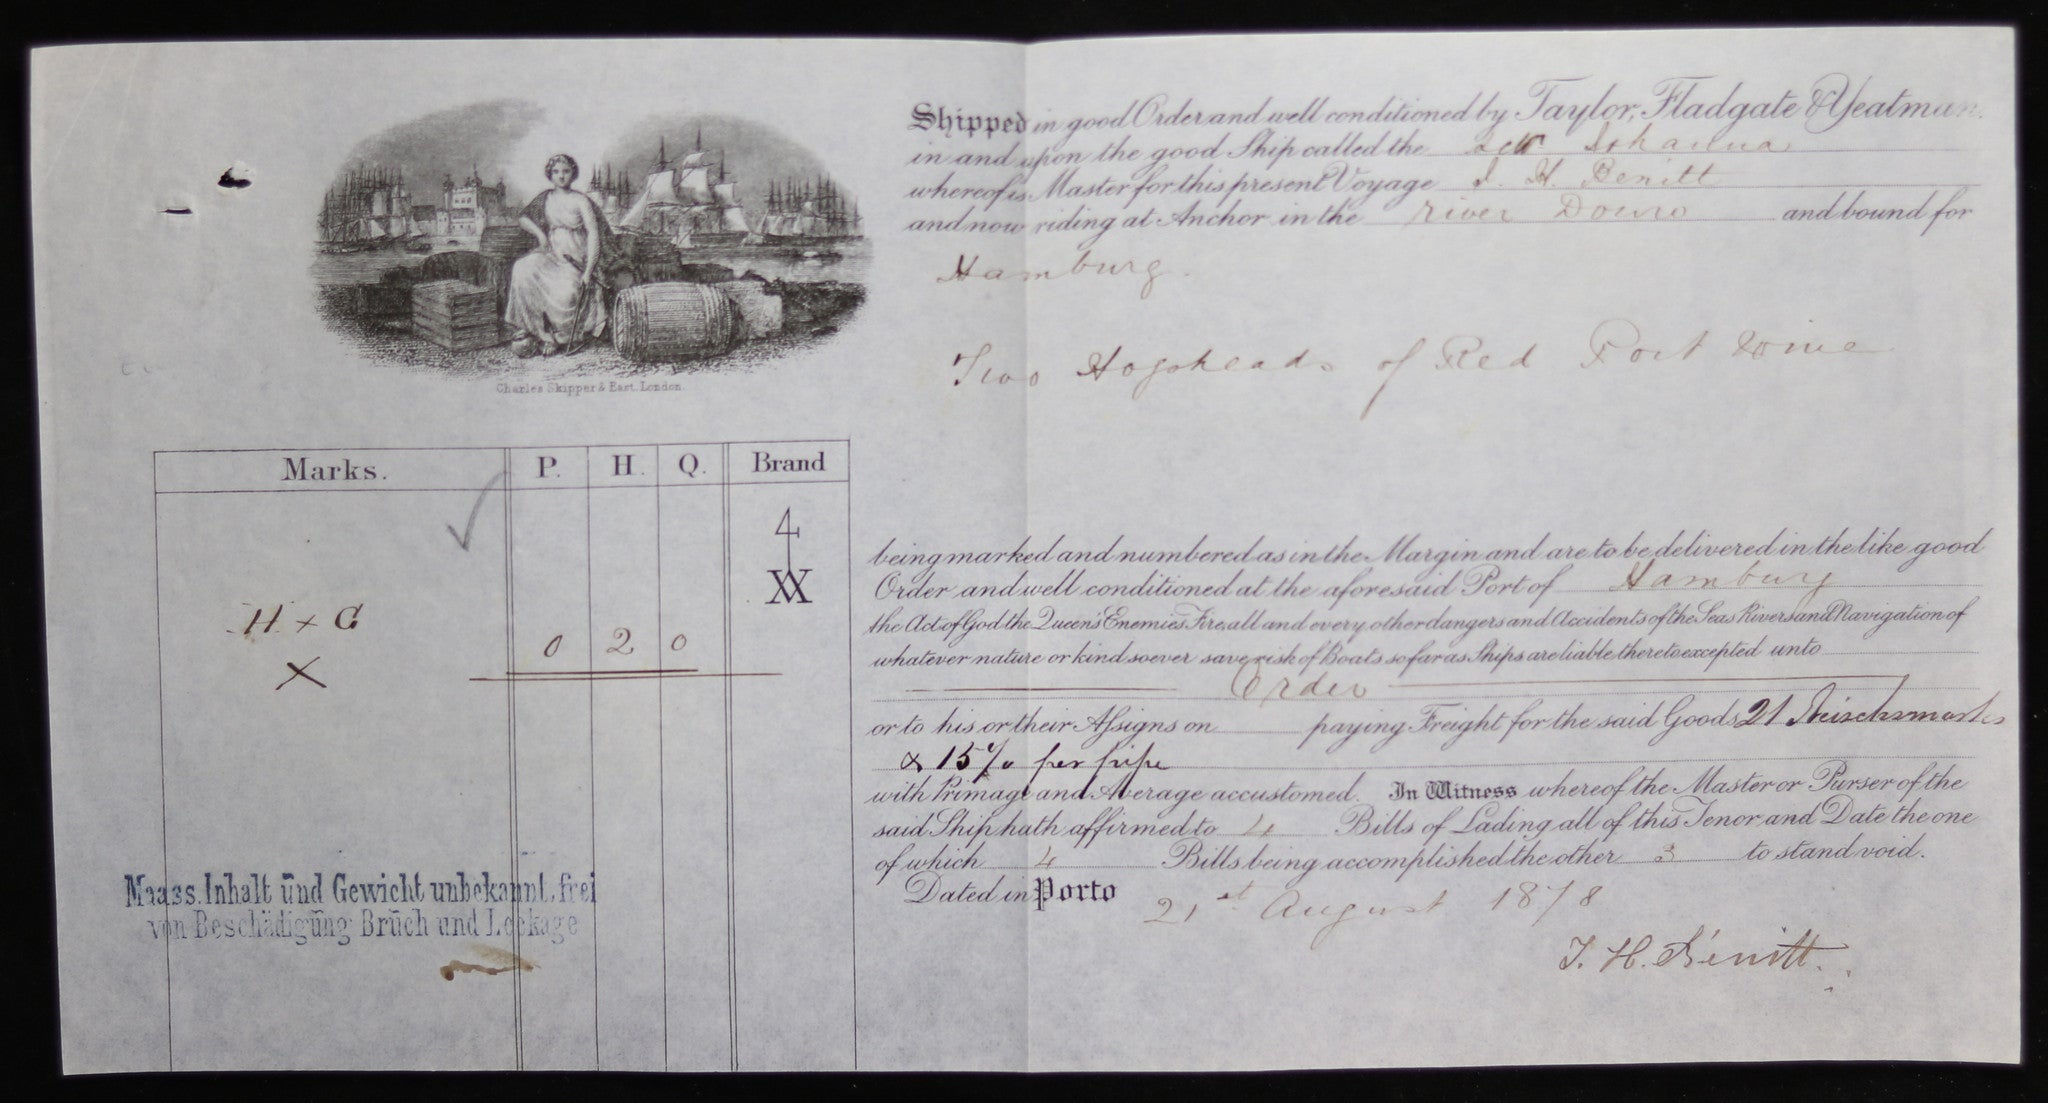 Charles Skipper & East. London.
Shipped in good Order and well conditioned by Taylor, Fladgate & Yeatman.
in and upon the good Ship called the Johanna
whereof is Master for this present Voyage J. H. Benitt
and now riding at Anchor in the river Douro and bound for
Hamburg.
Two Hogsheads of Red Port Wine
Marks. P. H. Q. Brand
4
XX
H + C
0 2 0
X
being marked and numbered as in the Margin and are to be delivered in the like good
Order and well conditioned at the aforesaid Port of Hamburg
the Act of God the Queen's Enemies Fire, all and every other dangers and Accidents of the Seas Rivers and Navigation of
whatever nature or kind soever save risk of Boats so far as Ships are liable thereto excepted unto
Order
or to his or their Assigns on paying Freight for the said Goods 21 Reichsmarks
& 15% per pipe
with Primage and Average accustomed. In Witness whereof the Master or Purser of the
said Ship hath affirmed to 4 Bills of Lading all of this Tenor and Date the one
of which 4 Bills being accomplished the other 3 to stand void.
Dated in Porto 21st August 1878
J. H. Benitt.
Maass, Inhalt und Gewicht unbekannt, frei
von Beschädigung Bruch und Leckage